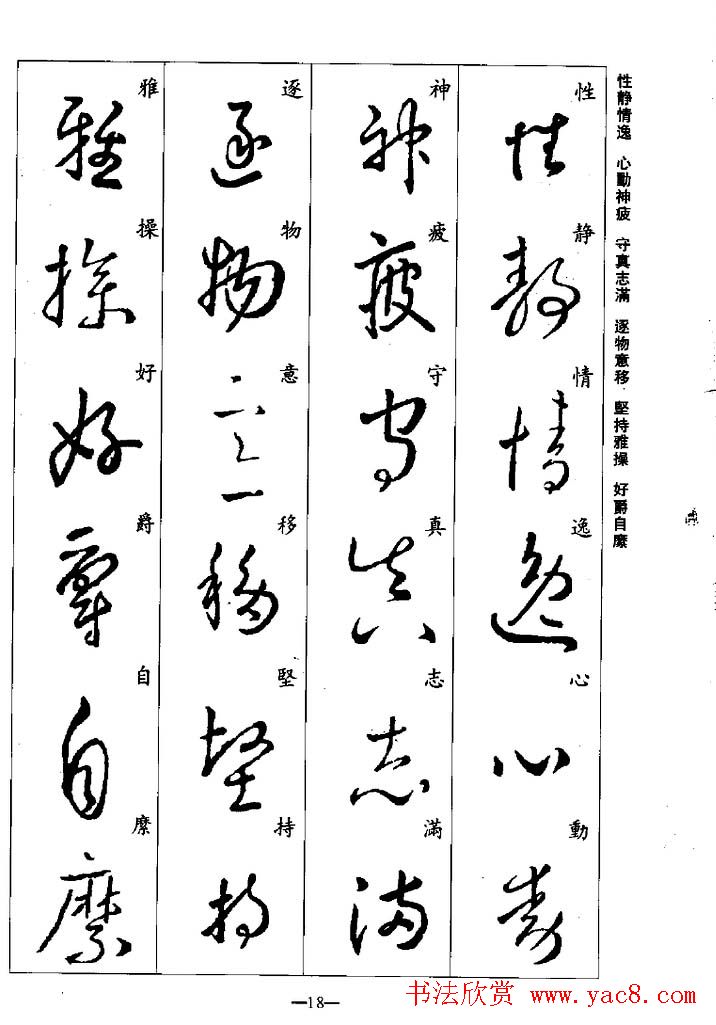 性静情逸 心動神疲 守真志滿 逐物意移 堅持雅操 好爵自縻
性静情逸心動
神疲守真志滿
逐物意移堅持
雅操好爵自縻
—18—
书法欣赏 www.yac8.com